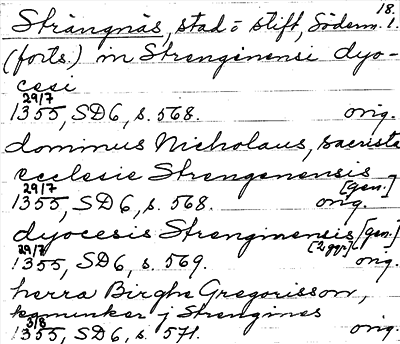 18.
Strängnäs, stad o stift, Söderm. 1.
(forts.) in Strenginensi dyo-
cesi
29/7
1355, SD6, s. 568. orig.
dominus Nicholaus, sacrista
ecclesie Strengenensis
29/7 [gen.]
1355, SD6, s. 568. orig.
dyocesis Strenginensis [gen.]
29/7 [2 ggr]
1355, SD6, s. 569. orig.
herra Birghe Gregorisson,
kanunker j Strengines
3/8
1355, SD6, s. 571. orig.